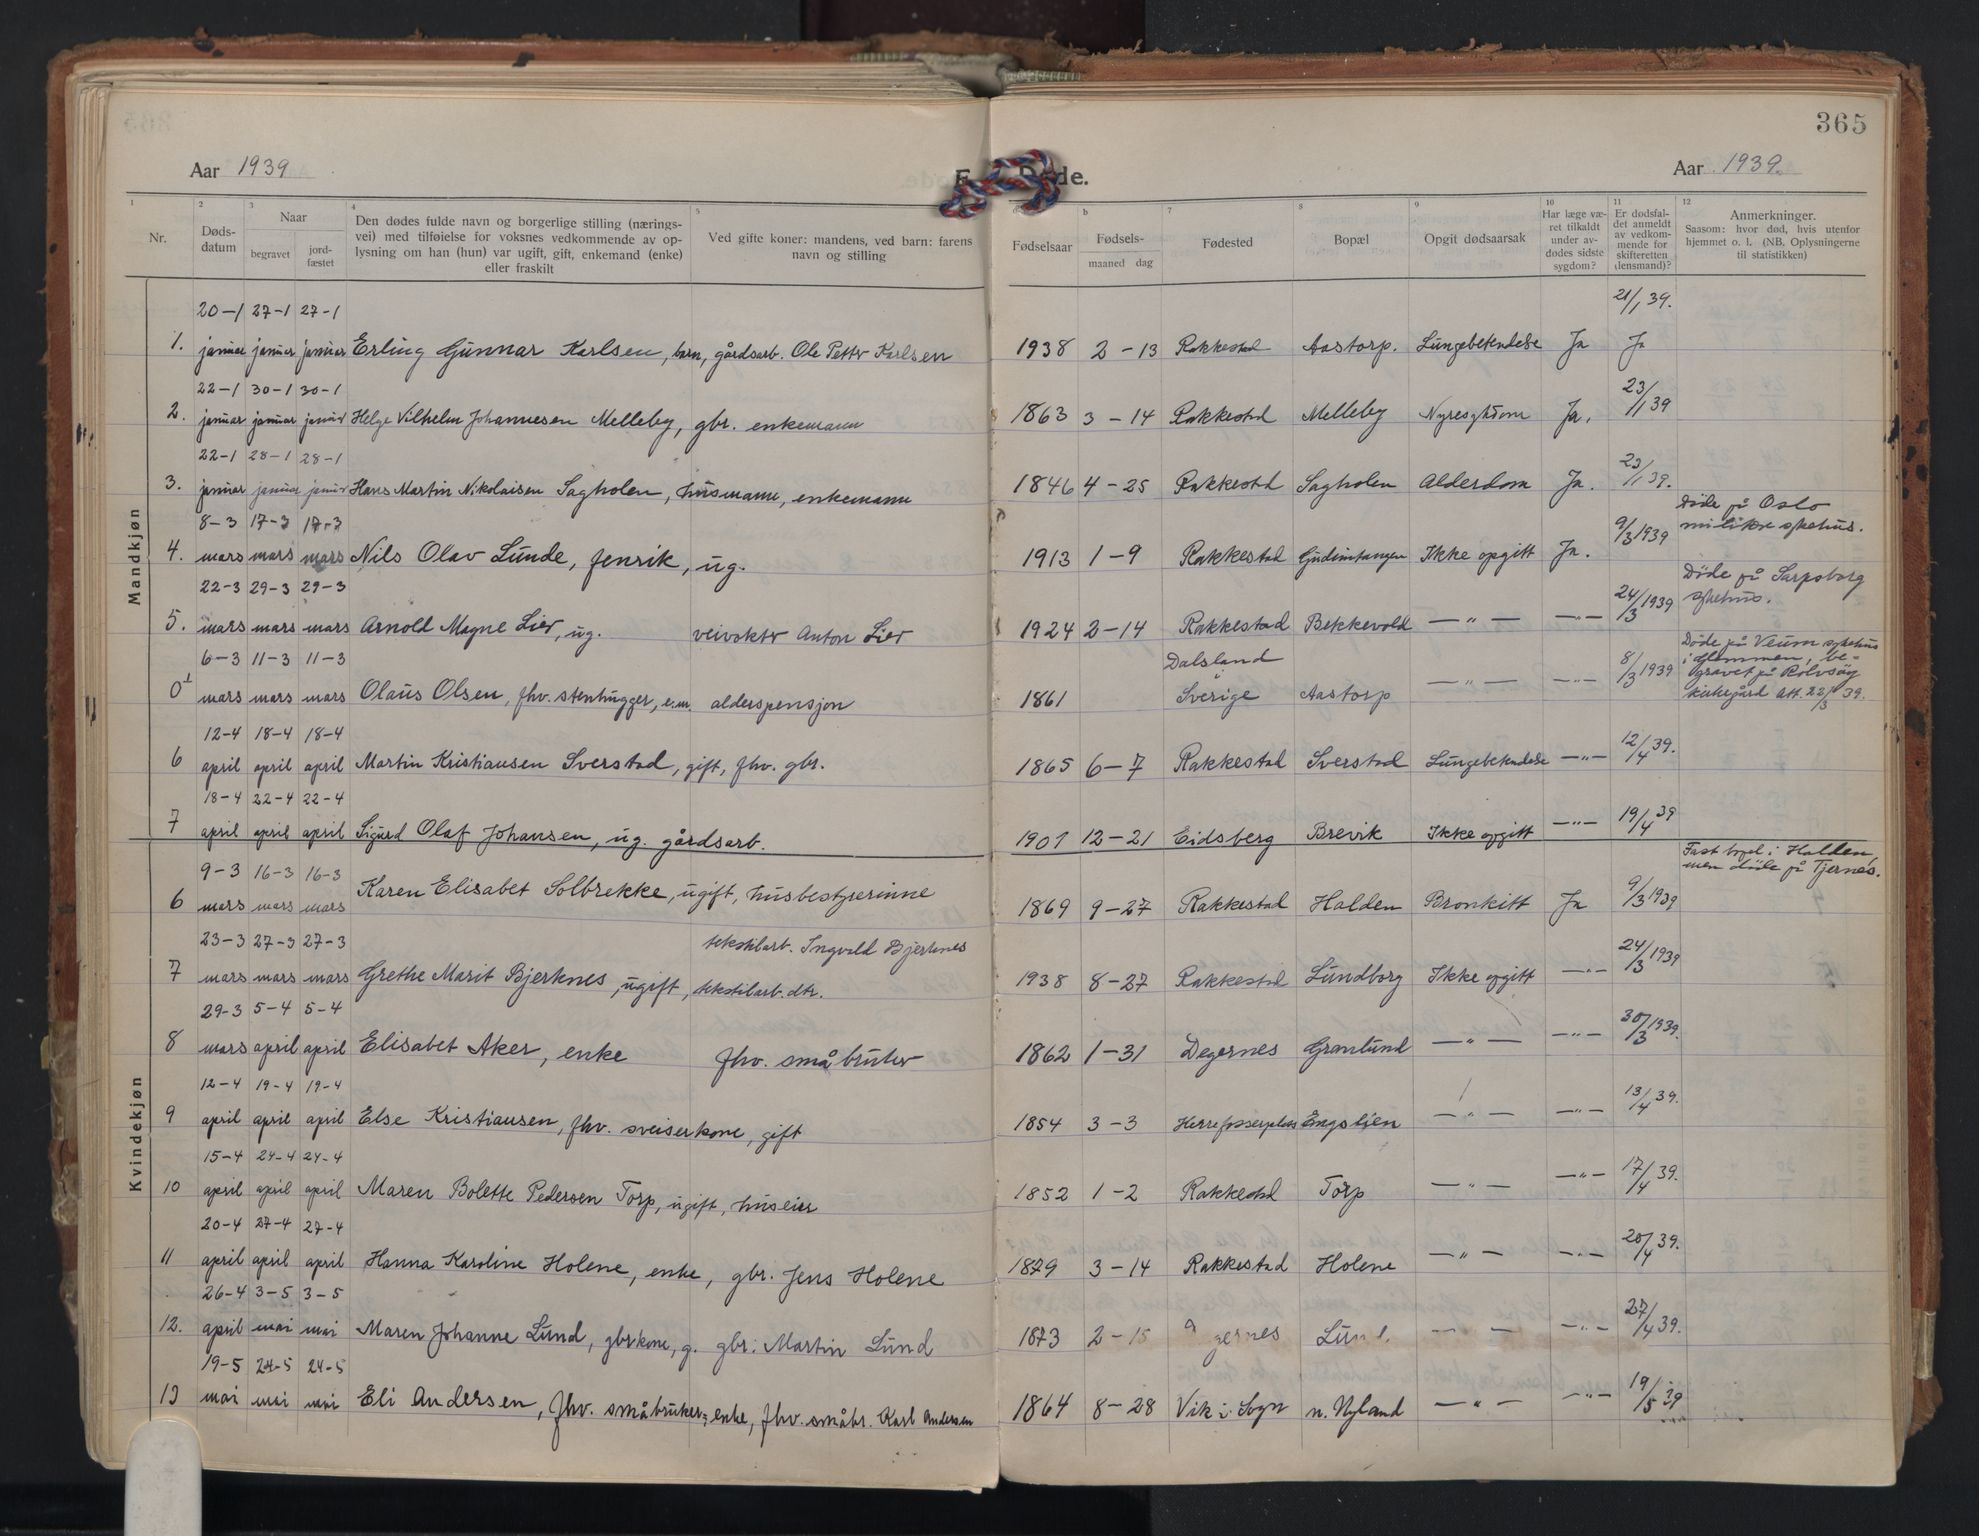 365
Aar 1939
Døde.
Aar 1939.
1 2 3 4 5 b 7 8 9 10 11 12
Nr.
Døds-
datum
Naar
begravet
jord-
fæstet
Den dødes fulde navn og borgerlige stilling (nærings-
vei) med tilføielse for voksnes vedkommende av op-
lysning om han (hun) var ugift, gift, enkemand (enke)
eller fraskilt
Ved gifte koner: mandens, ved barn: farens
navn og stilling
Fødselsaar
Fødsels-
maaned dag
Fødested
Bopæl
Opgit dødsaarsak
Har læge væ-
ret tilkaldt
under av-
dødes sidste
sygdom?
Er dødsfal-
det anmeldt
av vedkom-
mende for
skifteretten
(lensmand)?
Anmerkninger.
Saasom: hvor død, hvis utenfor
hjemmet o. l. (NB. Oplysningerne
til statistikken)
Mandkjøn
20-1 27-1 27-1 21/1 39.
1. januar januar januar Erling Gunnar Karlsen, barn, gårdsarb. Ole Petter Karlsen 1938 2-13 Rakkestad Aastorp. Lungebetendelse Ja Ja
22-1 30-1 30-1 23/1 39
2. januar januar januar Helge Vilhelm Johannesen Melleby, gbr. enkemann 1863 3-14 Rakkestad Melleby Nyresykdom Ja.
22-1 28-1 28-1 23/1 39.
3. januar januar januar Hans Martin Nikolaisen Sagholen, husmann, enkemann 1846 4-25 Rakkestad Sagholen Alderdom Ja.
8-3 17-3 17-3 9/3 1939 Døde på Oslo
militære sykehus.
4. mars mars mars Nils Olav Lunde, fenrik, ug. 1913 1-9 Rakkestad Gudimtangen Ikke opgitt Ja.
22-3 29-3 29-3 24/3 1939 Døde på Sarpsborg
sykehus.
5. mars mars mars Arnold Magne Lier, ug. veivokter Anton Lier 1924 2-14 Rakkestad Bekkevold — " — —"—
6-3 11-3 11-3 Dalsland 8/3 1939 Døde på Veum sykehus
i Glemmen, be-
gravet på Rolvsøy
kirkegård Att. 22/3 39.
0 mars mars mars Olaus Olsen, fhv. stenhugger, e.m. alderspensjon 1861 Sverige Aastorp — " — —"—
12-4 18-4 18-4 12/4 39.
6 april april april Martin Kristiansen Sverstad, gift, fhv. gbr. 1865 6-7 Rakkestad Sverstad Lungebetendelse —"—
18-4 22-4 22-4 19/4 39
7 april april april Sigurd Olaf Johansen, ug. gårdsarb. 1901 12-21 Eidsberg Brevik Ikke opgitt —"—
Kvindekjøn
9-3 16-3 16-3 9/3 1939 Fast bopel i Halden,
men døde på Tjernes.
6 mars mars mars Karen Elisabet Solbrekke, ugift, husbestyrerinne 1869 9-27 Rakkestad Halden Bronkitt Ja
23-3 27-3 27-3 tekstilarb. Ingvald Bjerknes 24/3 1939
7 mars mars mars Grethe Marit Bjerknes, ugift, tekstilarb.dtr. 1938 8-27 Rakkestad Lundborg Ikke opgitt —"—
29-3 5-4 5-4 30/3 1939.
8 mars april april Elisabet Aker, enke fhv. småbruker 1862 1-31 Degernes Granlund — " — —"—
12-4 19-4 19-4 13/4 39.
9 april april april Else Kristiansen, fhv. sveiserkone, gift 1854 3-3 Engslien — " — —"—
15-4 24-4 24-4 17/4 39.
10 april april april Maren Bolette Pedersen Torp, ugift, huseier 1852 1-2 Rakkestad Torp — " — —"—
20-4 27-4 27-4 20/4 39.
11 april april april Hanna Karoline Holene, enke, gbr. Jens Holene 1879 3-14 Rakkestad Holene — " — —"—
26-4 3-5 3-5 27/4 39.
12. april mai mai Maren Johanne Lund, gbrkone, g. gbr. Martin Lund 1873 2-15 Lund. — " — —"—
19-5 24-5 24-5 19/5 39
13 mai mai mai Eli Andersen, fhv. småbruker, enke, fhv. småbr. Karl Andersen 1864 8-28 Vik i Sogn n. Nyland — " — —"—